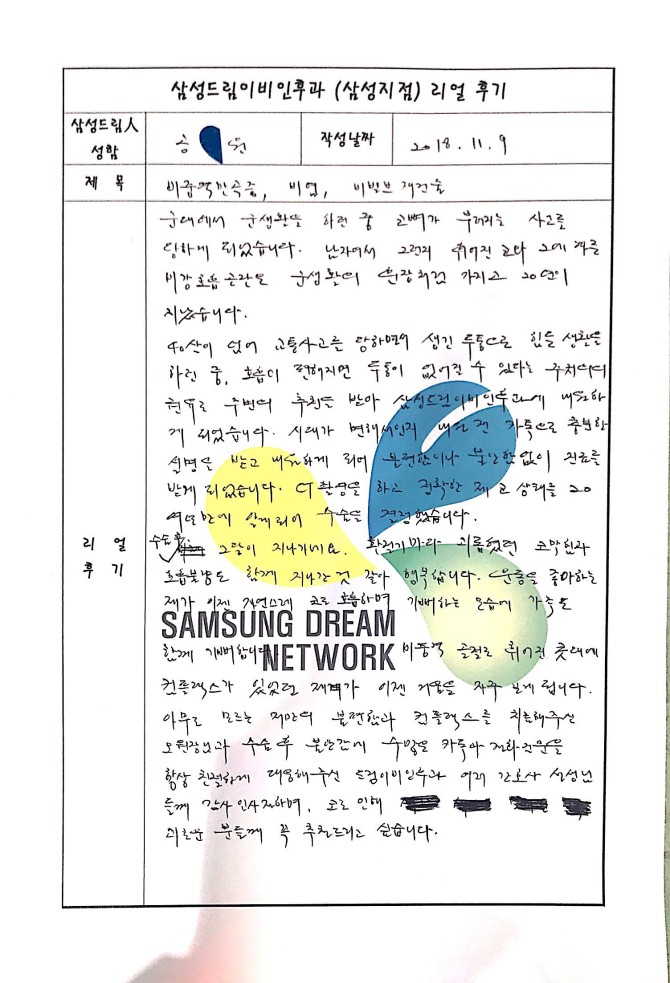 삼성드림이비인후과 (삼성지점) 리얼 후기
삼성드림人
성함
송 원
작성날짜
2018. 11. 9
제 목
비중격만곡증, 비염, 비밸브 재건술
군대에서 군생활을 하던 중 코뼈가 부러지는 사고를
당하게 되었습니다. 휘어진 코와 그에 따른
비강호흡곤란도 군생활의 훈장처럼 가지고 20년이
지났습니다.
40살이 넘어 교통사고를 당하면서 생긴 두통으로 힘든 생활을
하던 중, 호흡이 편해지면 두통이 없어질 수 있다는
권유로 주변의 추천을 받아 삼성드림이비인후과에 내원하
게 되었습니다. 시대가 변해서인지 내원 전 카톡으로 충분한
설명을 받고 내원하게 되어 불편함이나 불안함없이 진료를
받게 되었습니다. CT촬영을 하고 정확한 제 코 상태를 20
여년만에 알게되어 수술을 결정했습니다.
수술후
그달이 지나가네요. 환절기마다 괴롭혔던 코막힘과
호흡불량도 함께 지나간것 같아 행복합니다. 운동을 좋아하는
제가 이젠 자연스레 코로 호흡하며 기뻐하는 모습에 가족도
함께 기뻐합니다. 비중격 골절로 휘어진 콧대에
컨플렉스가 있었던 제가 이젠 거울을 자주 보게 됩니다.
아무도 모르는 저만의 불편함과 컨플렉스를 치료해주신
오원장님과 수술후 불안감에 수많은 카톡과 전화문의를
항상 친절하게 대응해주신 드림이비인후과 여러 간호사 선생님
들께 감사인사전하며, 코로 인해
괴로운 분들께 꼭 추천드리고 싶습니다.
리 얼
후 기
SAMSUNG DREAM
NETWORK